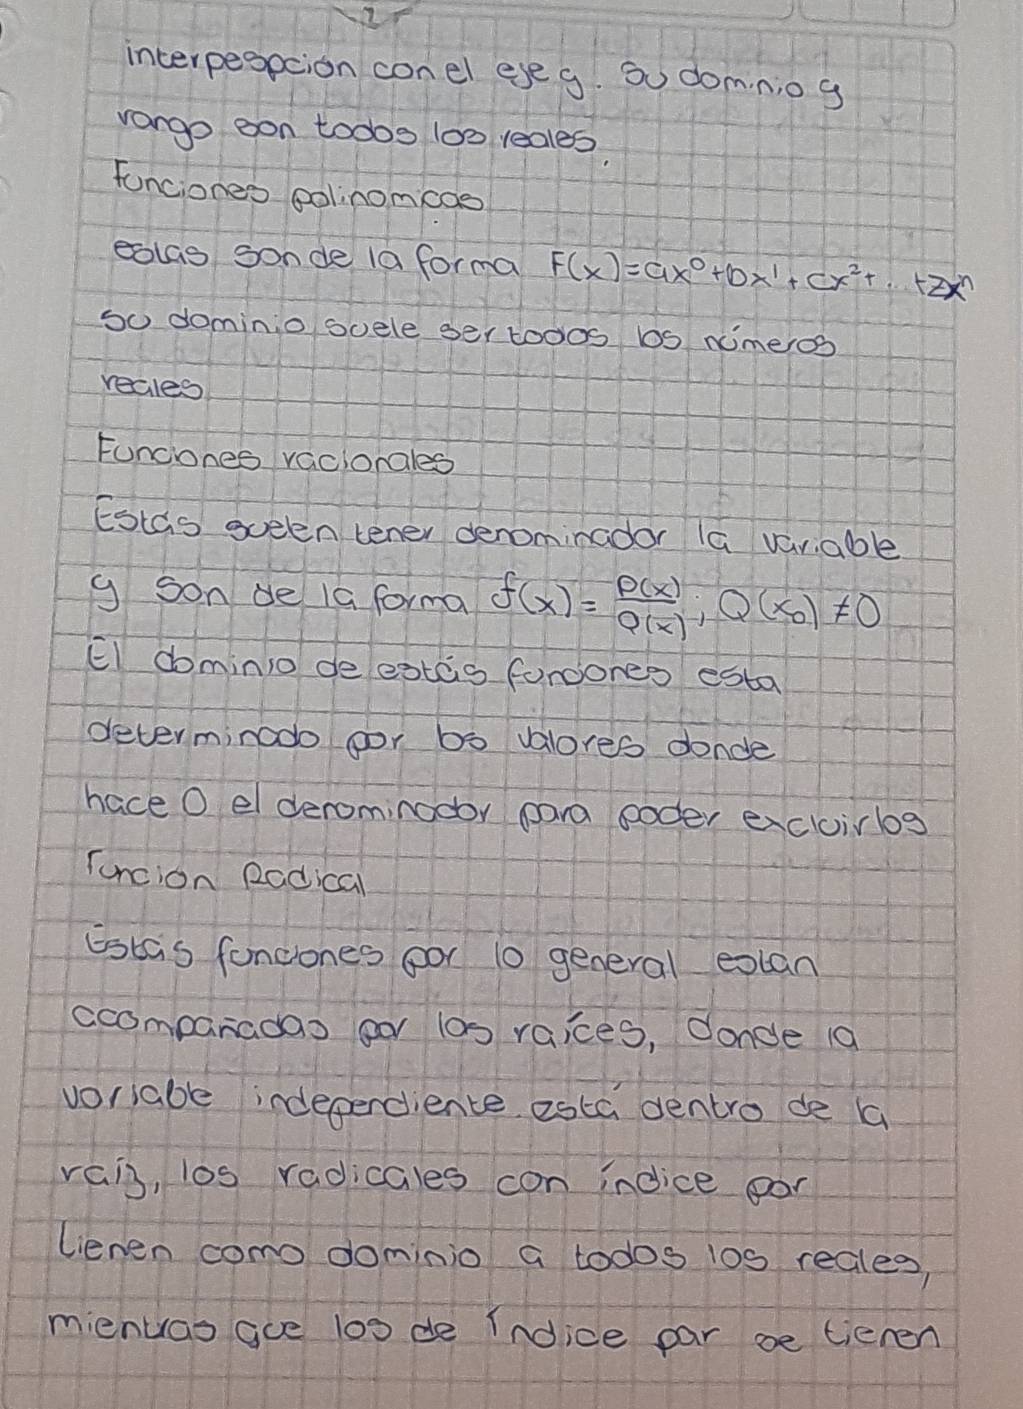 2
interpespción con el eje y. Su dominio y
rango son todos los reales.
Funciones polinomicas
estas son de la forma F(x)=ax⁰+bx¹+cx²+...+zxⁿ
su dominio suele ser todos los números
reales
Funciones racionales
Estás suelen tener denominador la variable
y son de la forma f(x)= P(x)/Q(x); Q(x₀)≠0
El dominio de estás funciones esta
determinado por los valores donde
hace 0 el denominador para poder excluirlos
Función Radical
Estás funciones por lo general estan
acompañadas por las raíces, donde la
variable independiente está dentro de la
raíz, los radicales con índice par
tienen como dominio a todos los reales,
mientras que los de índice par se tienen